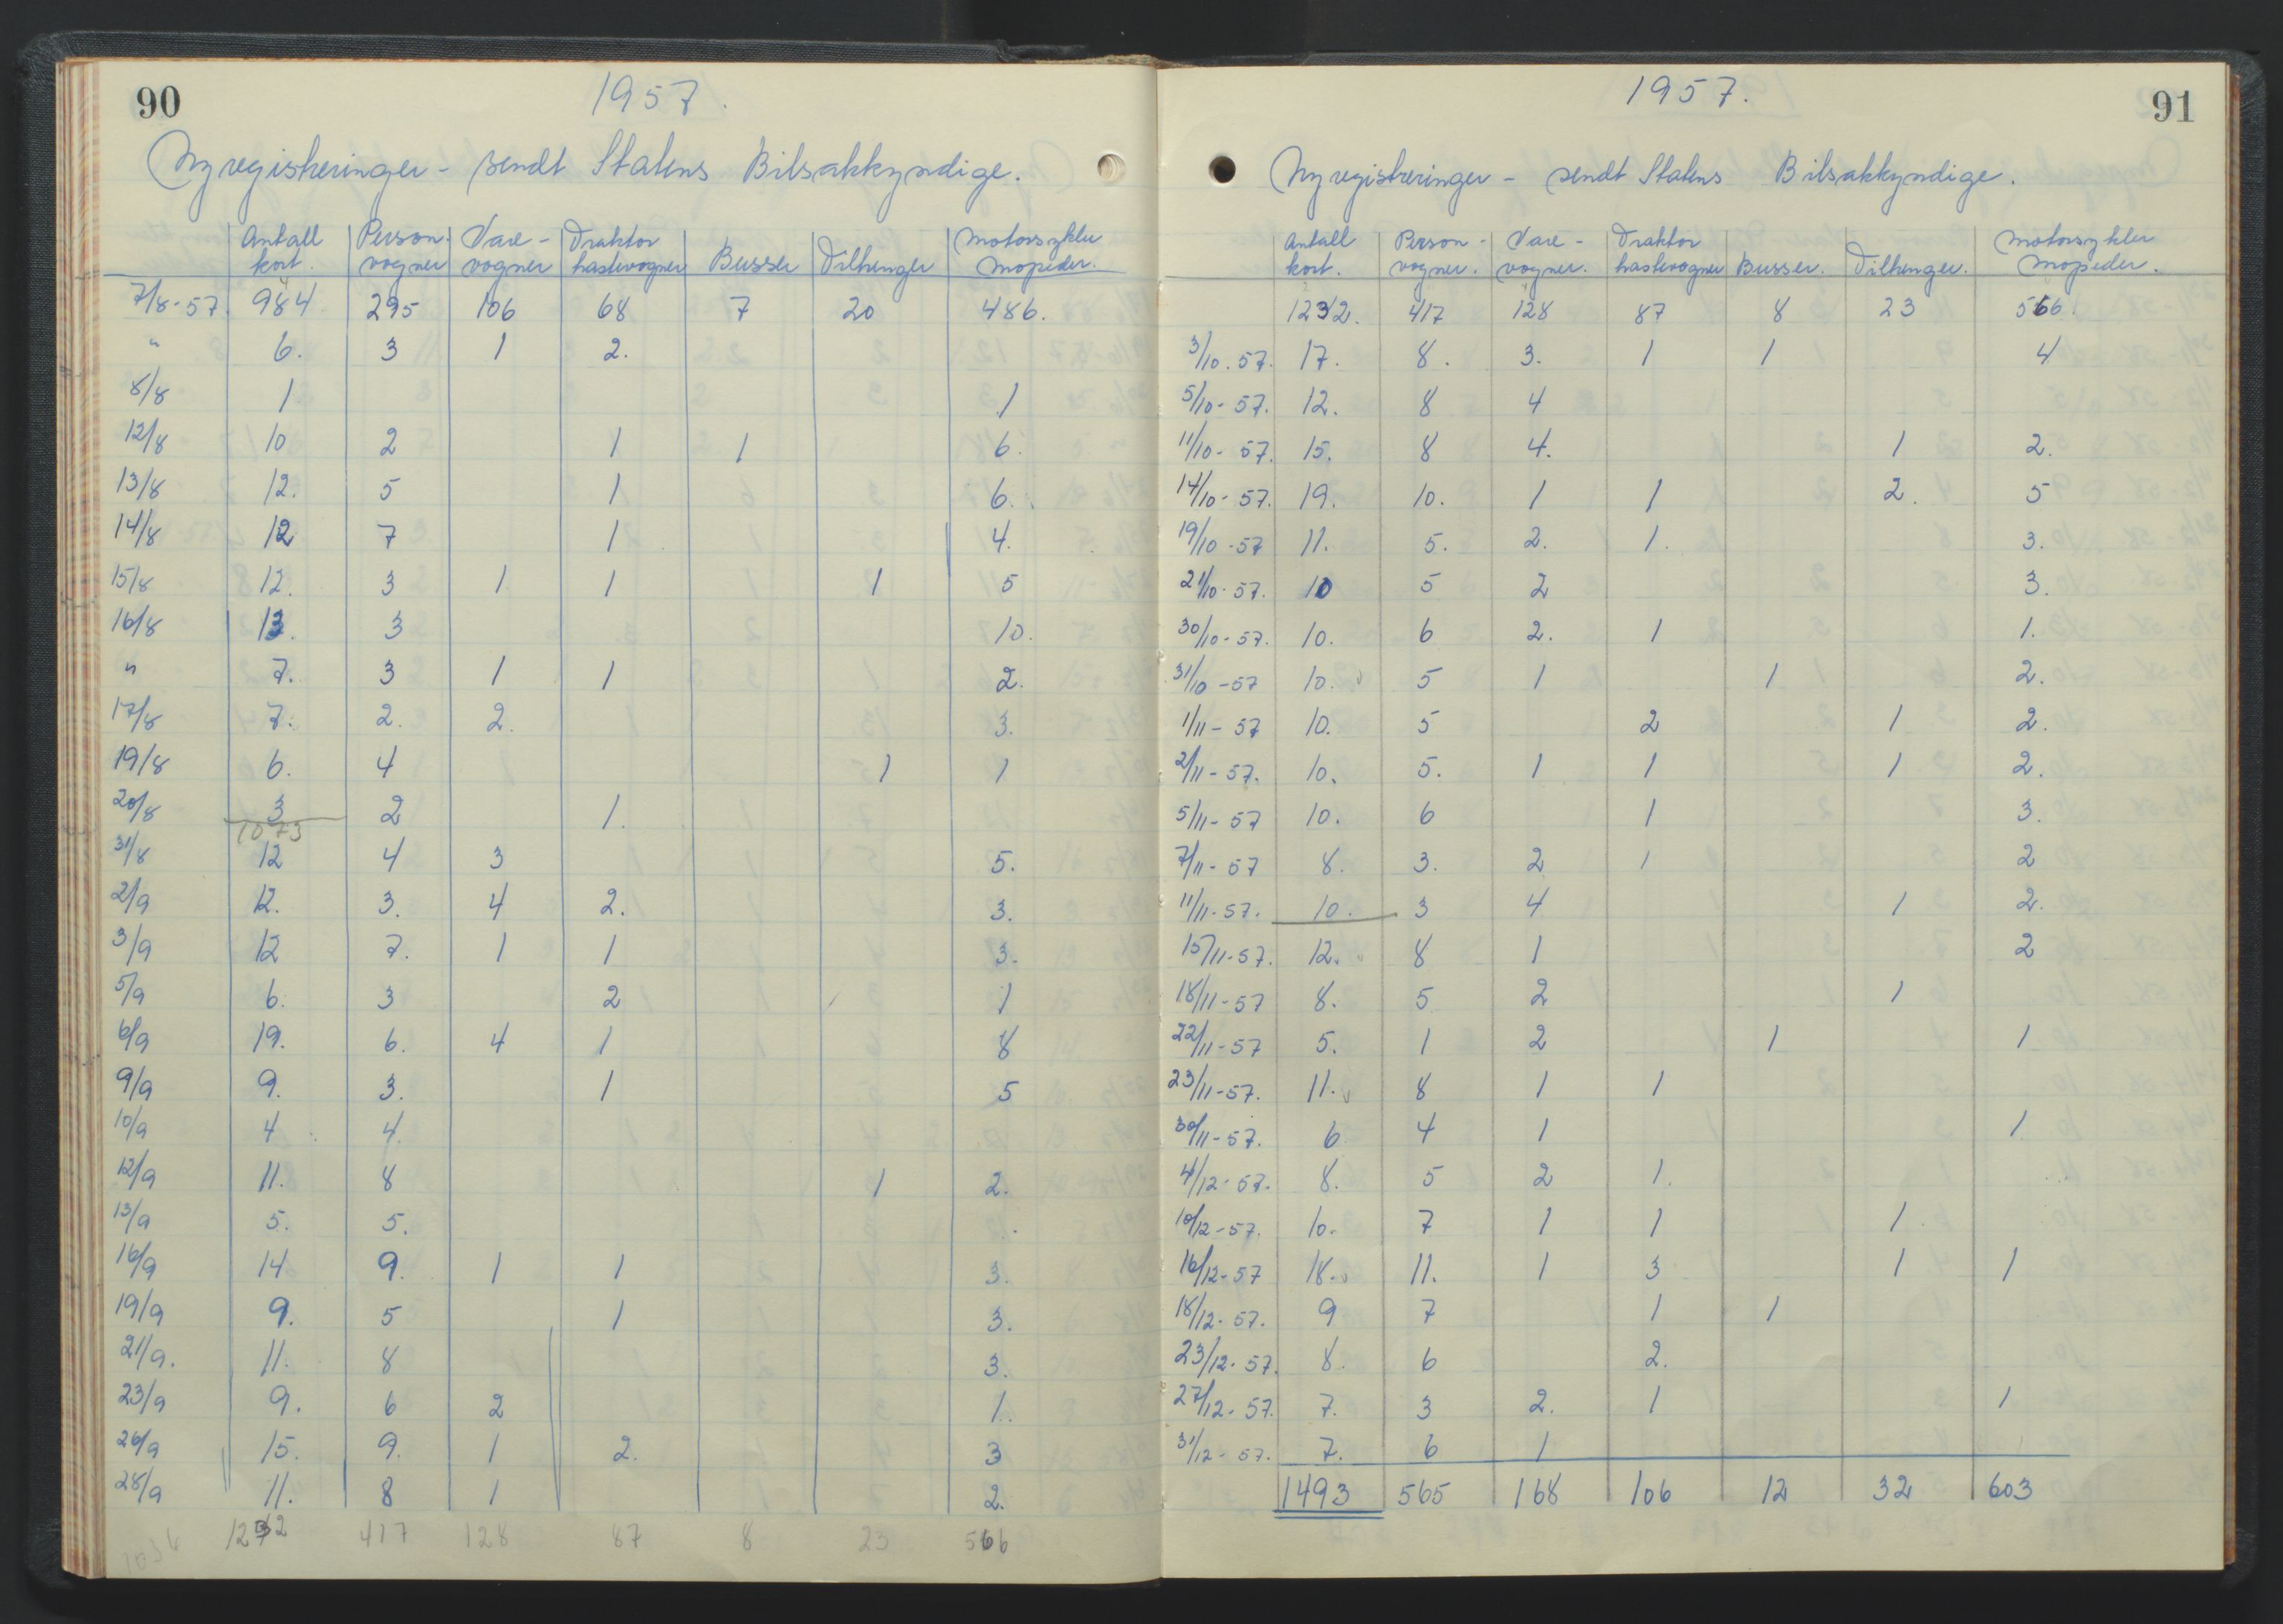 90
1957.
Nyregistreringer - sendt Statens Bilsakkyndige.
Antall kort. Person- vogner Vare- vogner Traktor lastevogner Busser Tilhenger Motorsykler Mopeder.
7/8-57. 984. 295 106 68 7 20 486.
" 6. 3 1 2.
8/8 1 1
12/8 10 2 1 1 6.
13/8 12. 5 1 6.
14/8 12 7 1 4.
15/8 12. 3 1 1 1 5
16/8 13. 3 10.
" 7. 3 1 1 2.
17/8 7. 2. 2. 3.
19/8 6. 4 1 1
20/8 3 2 1.
1073
31/8 12 4 3 5.
2/9 12. 3. 4 2. 3.
3/9 12 7. 1 1 3.
5/9 6. 3 2 1
6/9 19. 6. 4 1 8
9/9 9. 3. 1 5
10/9 4 4
12/9 11. 8 1 2.
13/9 5. 5.
16/9 14 9. 1 1 3.
19/9 9. 5 1 3.
21/9. 11. 8 3.
23/9 9. 6 2 1.
26/9 15. 9. 1 2. 3
28/9 11. 8 1 2.
1232 417 128 87 8 23 566
91
1957.
Nyregistreringer - sendt Statens Bilsakkyndige.
Antall kort. Person- vogner. Vare- vogner. Traktor lastevogner Busser. Tilhenger. Motorsykler Mopeder.
1232. 417 128 87 8 23 566.
3/10.57. 17. 8. 3. 1 1 4
5/10-57. 12. 8 4
11/10-57. 15. 8 4. 1 2.
14/10-57. 19. 10. 1 1 2. 5
19/10-57 11. 5. 2. 1. 3.
21/10-57. 10 5 2 3.
30/10-57. 10. 6 2. 1 1.
31/10-57 10. 5 1 1 2.
1/11-57 10. 5 2 1 2.
2/11-57. 10. 5. 1 1 1 2.
5/11-57 10. 6 1 3.
7/11-57 8. 3. 2 1 2
11/11-57. 10. 3 4 1 2.
15/11-57. 12. 8 1 2
18/11-57 8. 5 2 1
22/11-57 5. 1 2 1 1
23/11-57. 11. 8 1 1
30/11-57. 6 4 1 1
4/12-57. 8. 5 2 1.
10/12-57. 10. 7 1 1 1
16/12-57 18. 11. 1 3 1 1
18/12-57. 9 7 1 1
23/12-57. 8. 6 2.
27/12-57. 7. 3 2. 1 1
31/12-57. 7. 6 1
1493 565 168 106 12 32 603